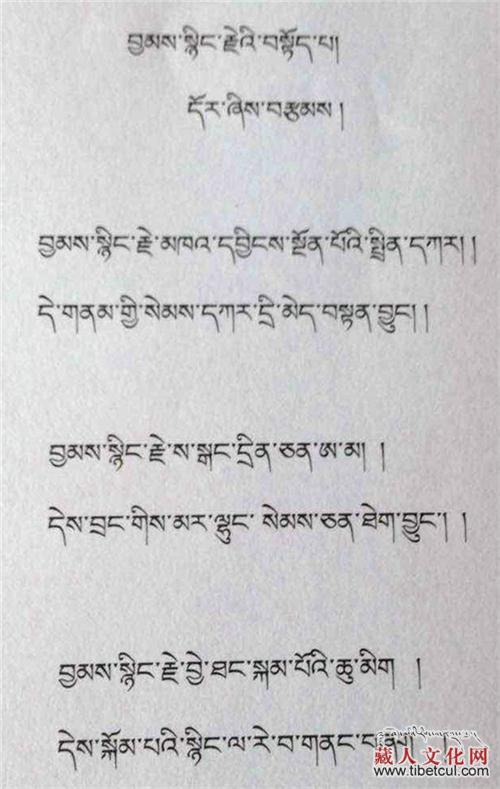 བྱམས་སྙིང་རྗེའི་བསྟོད་པ།
དོར་ཞིས་བརྩམས།
བྱམས་སྙིང་རྗེ་མཁའ་དབྱིངས་སྔོན་པོའི་སྤྲིན་དཀར། །
དེ་གནམ་གྱི་སེམས་དཀར་དྲི་མེད་བསྟན་བྱུང། །
བྱམས་སྙིང་རྗེ་ས་སྒང་དྲིན་ཅན་ཨ་མ། །
དེས་བྲང་གིས་མར་ལྷུང་ སེམས་ཅན་ཐེག་བྱུང་། །
བྱམས་སྙིང་རྗེ་བྱེ་ཐང་སྐམ་པོའི་ཆུ་མིག །
དེས་སྐོམ་པའི་སྙིང་ལ་རེ་བ་གནང་
藏人文化网
www.tibetcul.com